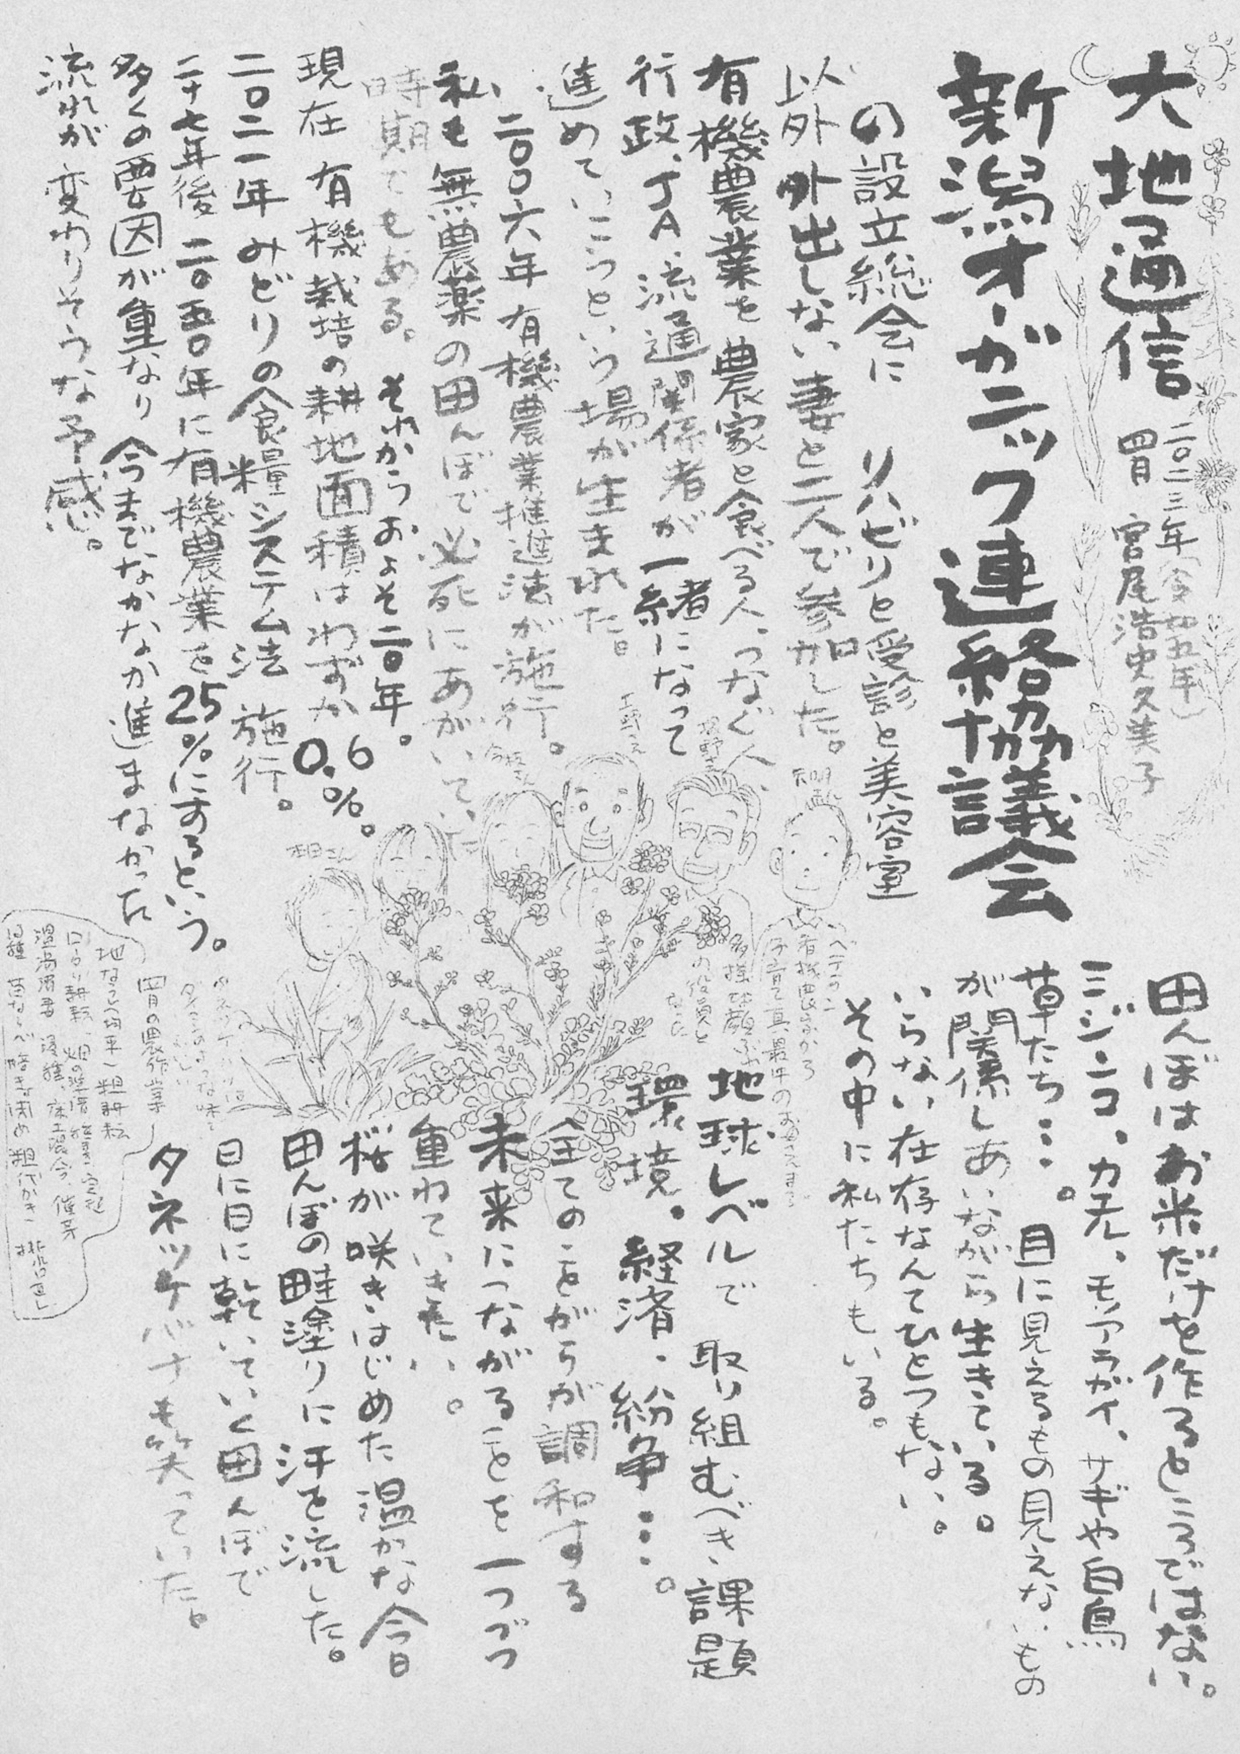 大地通信
二〇二三年(令和五年)
四月 宮尾浩史久美子
新潟オーガニック連絡協議会
の設立総会に リハビリと受診と美容室
以外外出しない妻と二人で参加した。
有機農業を農家と食べる人、つなぐ人、
行政、JA、流通関係者が一緒になって
進めていこうという場が生まれた。
二〇〇六年有機農業推進法が施行。
私も無農薬の田んぼで必死にあがいていた
時期でもある。それからおよそ二〇年。
現在 有機栽培の耕地面積はわずか0.6%。
二〇二一年みどりの食糧システム法 施行。
二十七年後二〇五〇年に有機農業を25%にするという。
多くの要因が重なり 今までなかなか進まなかった
流れが変わりそうな予感。
田んぼはお米だけを作るところではない。
ミジンコ、カエル、モノアラガイ、サギや白鳥
草たち…。目に見えるもの見えないもの
が関係しあいながら生きている。
いらない在存なんてひとつもない。
その中に私たちもいる。
地球レベルで 取り組むべき課題
環境。経済、紛争…。
全てのことがらが調和する
未来につながることを一つづつ
重ねていきたい。
桜が咲きはじめた温かな今日
田んぼの畦塗りに汗を流した。
日に日に乾いていく田んぼで
タネツケバナも笑っていた。
四月の農作業